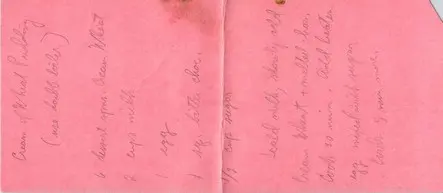 Cream of Wheat Pudding
(use double boiler)
6 dessert spns. Cream Wheat
2 cups milk
1 egg
1 sq. bitter choc.
1/3 cup sugar
Scald milk, slowly add
Cream Wheat + melted choc.
Cook 10 min. Add beaten
egg mixed with sugar
Cook 5 min more.